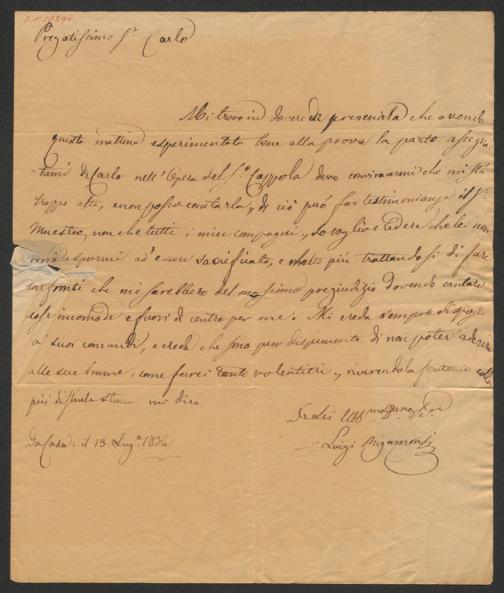 Pregatissimo Sr. Carlo
Mi trovo in dovere di prevenirla che avendo
questa mattina esperimentata bene alla prova la parte assegna
tami di Carlo nell'Opera del Sr. Coppola devo convincermi che mi sta
troppo alta, e non posso cantarla, e di ciò può far testimonianza il Sr.
Maestro, non che tutti i miei compagni, Io voglio credere che lei non
vorrà espormi ad essere sacrificato, e molto più trattandosi di fare
confronti che mi sarebbero del massimo pregiudizio dovendo cantare
così incomodo e fuori di centro per me. Mi creda sempre disposto
a' suoi comandi, e creda che sono pur dispiacente di non poter aderire
alle sue brame, come farei tanto volentieri, riverendola frattanto colla
più distinta stima mi dico
Di Lei
Luigi Rigamonti
Da Casa; il 13 1836